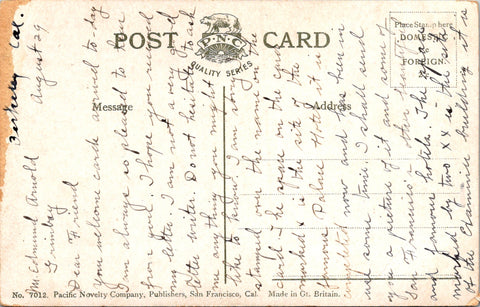 POST CARD
D.N.C
QUALITY SERIES
Message
Address
Place Stamp here
DOMESTIC
FOREIGN
No. 7012. Pacific Novelty Company, Publishers, San Francisco, Cal. Made in Gt. Britain.
Berkeley Cal.
August 29
Mr Edmund Arnold
Dear Friend
Your welcome cards arrived to-day
I am always so pleased to hear
from you. I hope you received
my letter. I am not a very good
letter writer. Do not hesitate to ask
me anything you might
like to know. I am
stamped over the name on the
the space on the card
marked is the site of the
famous Palace Hotel it is
completed now and has been in
used some time. I shall send
you a picture of it and some of
San Francisco' other beautiful
and famous hotels. The space
marked by two xx is the site
of the Examiner building it is